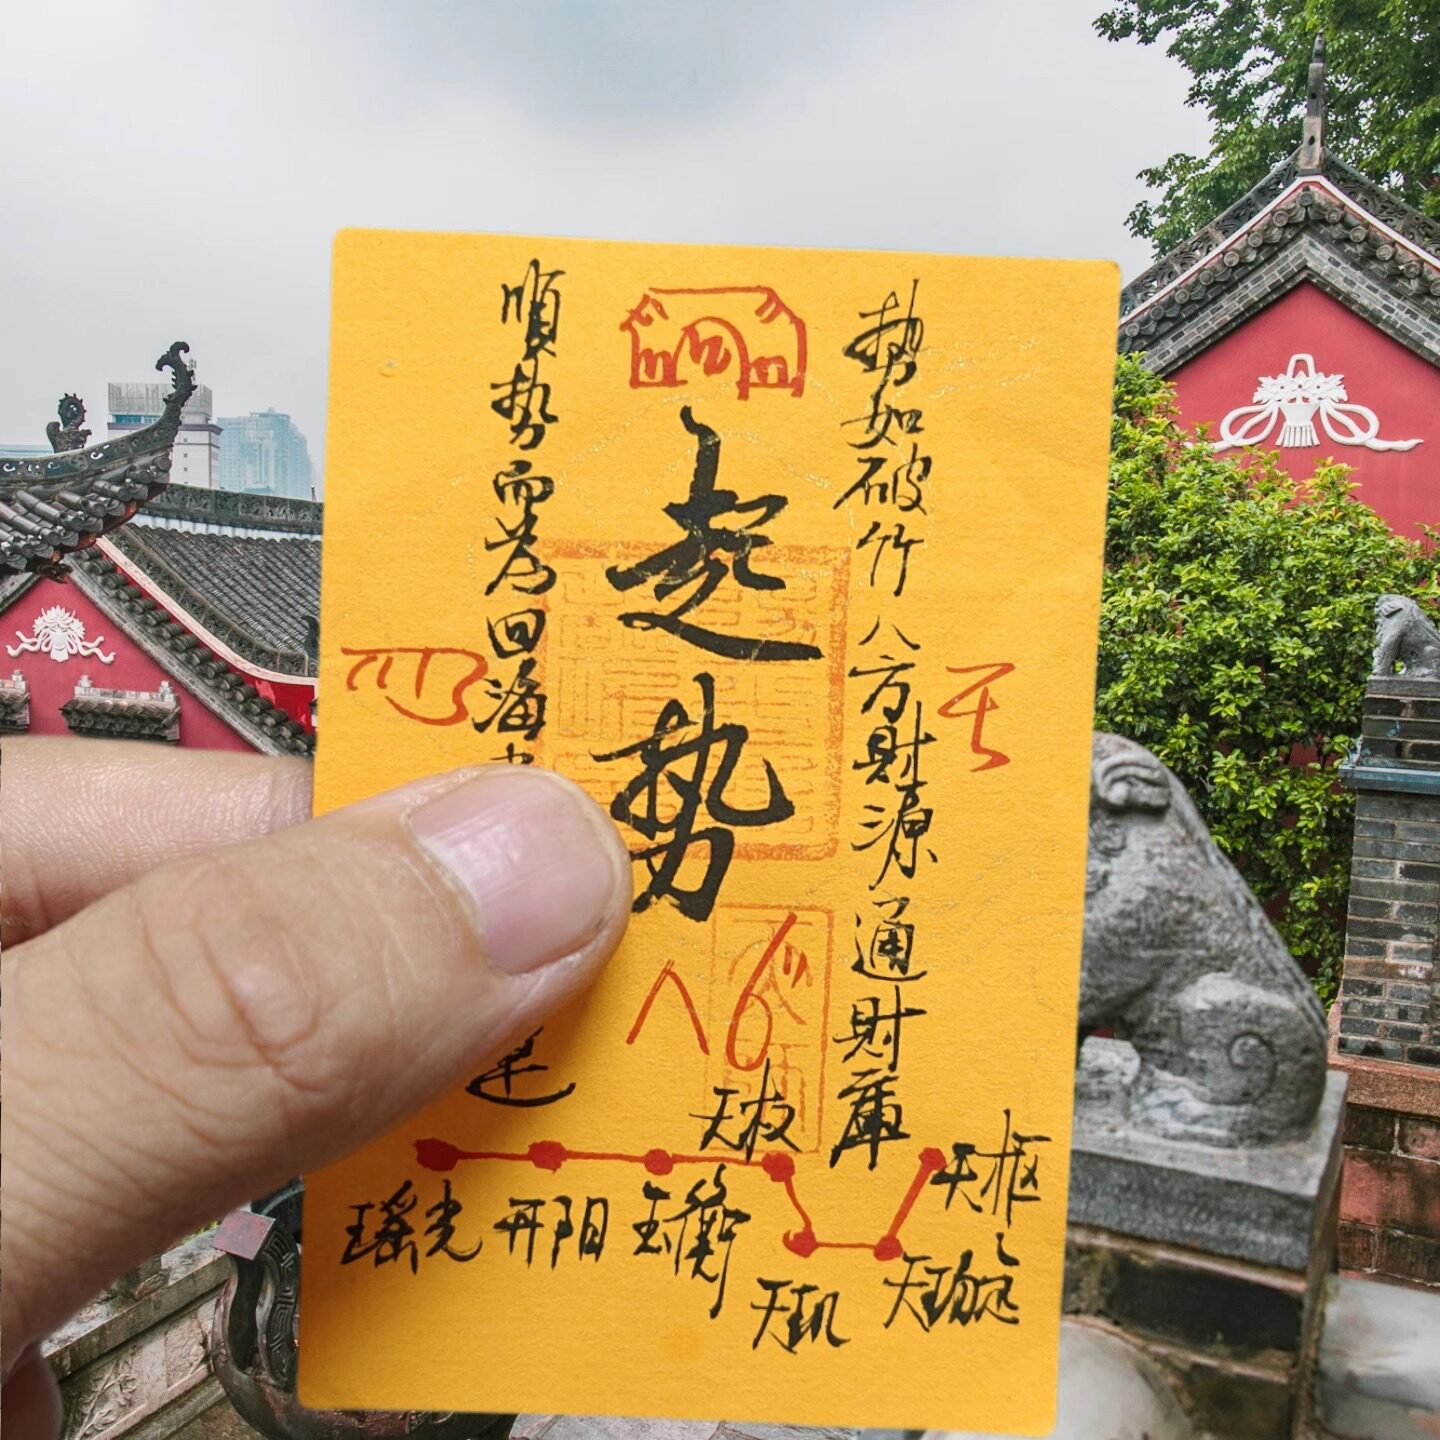 势如破竹八方財源通財庫
起势
順势而为四海
天权
天枢
瑶光
开阳
玉衡
天玑
天璇